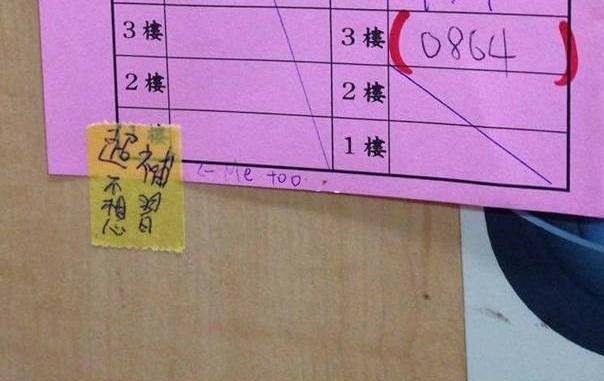 3樓 3樓 (0864)
2樓 2樓
樓 1樓
超不想
補習
← Me too.